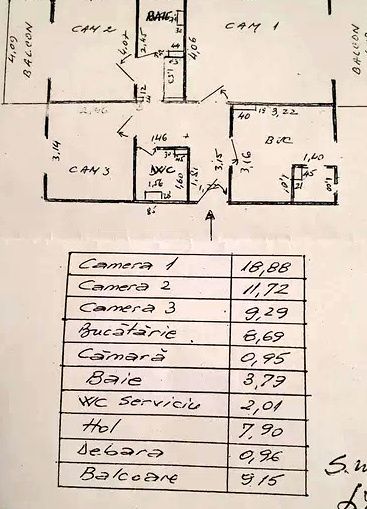 BAIE
CAM 2
CAM 1
4,09
BALCON
4,07
2,45
4,06
BALCON
2,96
40
15
3,22
146
BUC
3,14
WC
3,15
3,16
1,40
45
CAM 3
1,56
1,60
1,51
1,01
Camera 1 18,88
Camera 2 11,72
Camera 3 9,29
Bucătărie 8,69
Cămară 0,95
Baie 3,79
WC serviciu 2,01
Hol 7,90
Debara 0,96
Balcoane 9,15